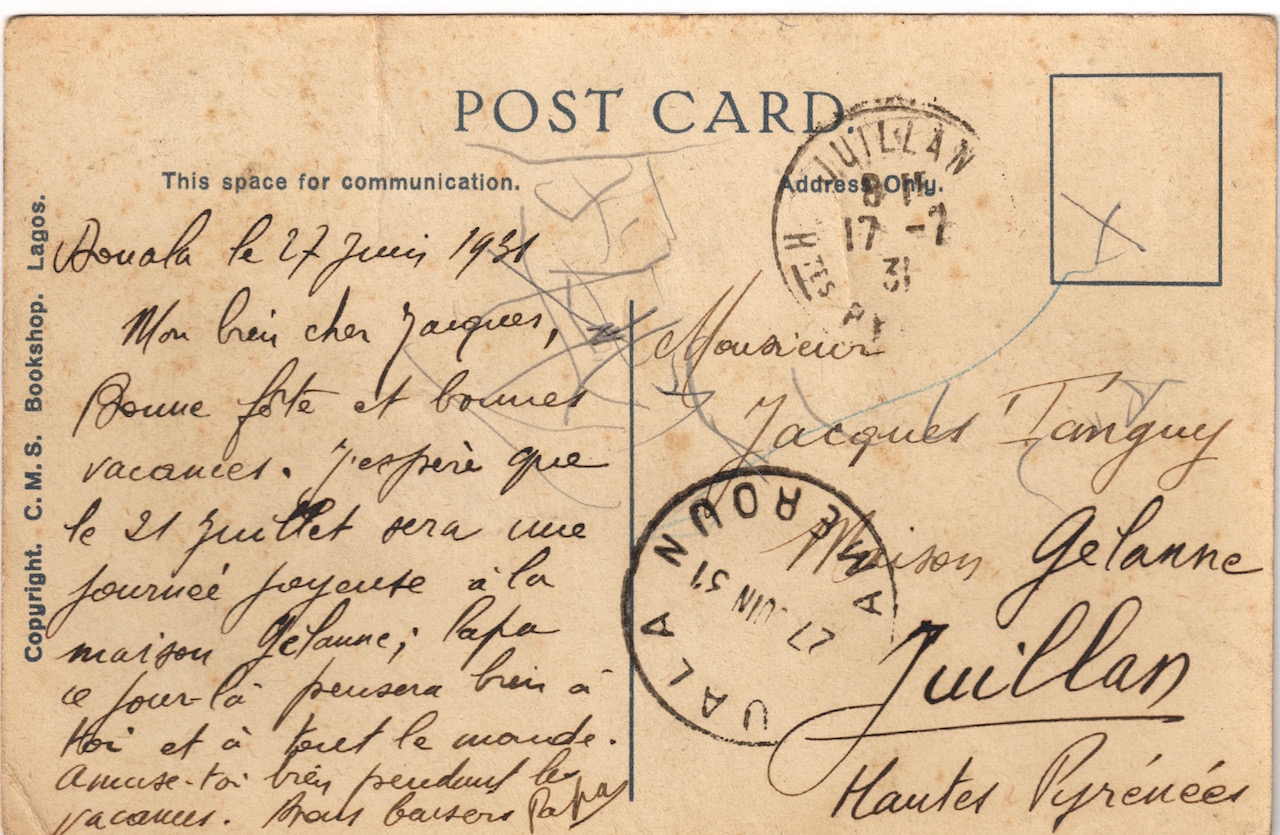 POST CARD.
This space for communication.
Address Only.
Copyright. C. M. S. Bookshop. Lagos.
Douala le 27 Juin 1931
Mon bien cher Jacques,
Bonne fête et bonnes
vacances. J'espère que
le 21 Juillet sera une
journée joyeuse à la
maison Gélanne; Papa
ce jour-là pensera bien à
toi et à tout le monde.
Amuse-toi bien pendant les
vacances. baisers Papa
Monsieur
Jacques Tanguy
Maison Gélanne
Juillan
Hautes Pyrénées
JUILLAN
17 -7
31
HTES PY
UALA
27 JUIN 31
CAMEROUN